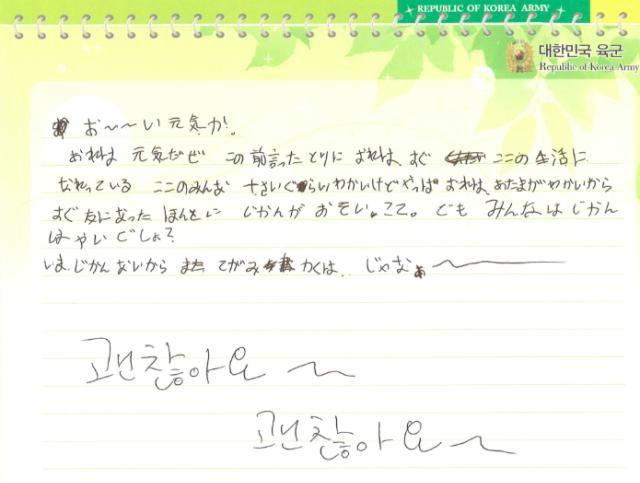 REPUBLIC OF KOREA ARMY
대한민국 육군
Republic of Korea Army
お〜〜い元気か!
おれは 元気だぜ この前言ったとりに おれは、すぐ ここの生活に
なれっている ここのみんな 十さいぐらいわかいけどやっぱ おれは、あたまがわかいから
すぐ友になった ほんとに じかんが おそい。ここ。 ども みんなは じかん
はやいでしょ?
いま じかんないから また てがみ かくは じゃなぁ〜
괜찮아요~
괜찮아요~